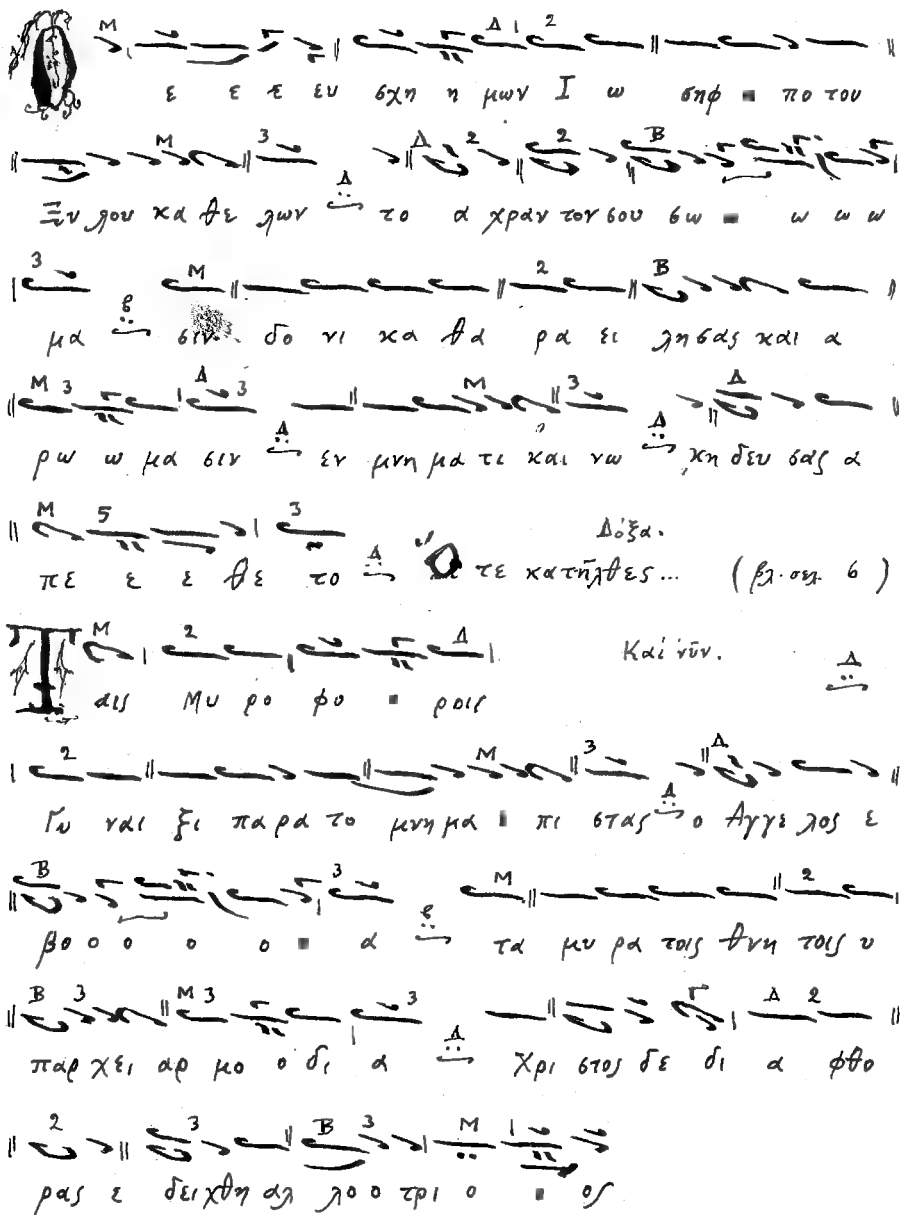 Ο ε ε ε ευ σχη η μων Ι ω σηφ πο του
Ξυ λου κα θε λων το α χραν τον σου σω ω ω ω
μα σιν δο νι κα θα ρα ει λη σας και α
ρω ω μα σιν εν μνη μα τι και νω κη δευ σας α
Δόξα.
πε ε ε θε το Ο τε κατῆλθες... (βλ. σελ. 6)
Καί νῦν.
Τ αις Μυ ρο φο ροις
Γυ ναι ξι πα ρα το μνη μα πι στας ο Αγγε λος ε
βο ο ο ο ο α τα μυ ρα τοις θνη τοις υ
παρ χει αρ μο ο δι α Χρι στος δε δι α φθο
ρας ε δει χθη αλ λο ο τρι ο ος